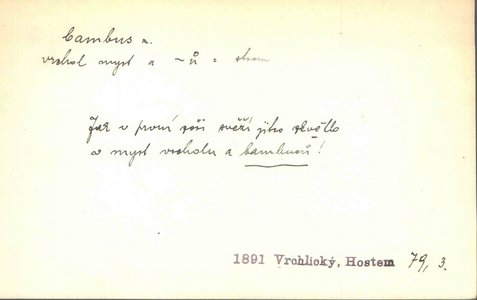 bambus m.
vrchol myst a ~ů
Jak v první září svěží jiho světlo
a myst vrcholu a bambusů!
1891 Vrchlický, Hostem 79, 3.